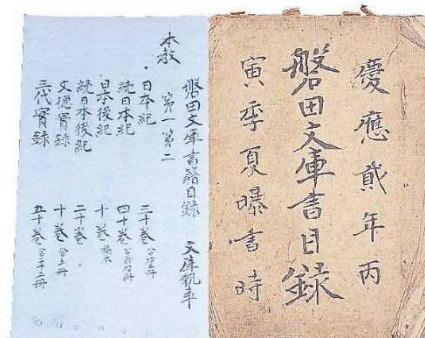 慶應貳年丙
磐田文庫書目録
寅季夏曝書時
磐田文庫書籍目録 文庫執事
第一 第二
本教
日本紀 三十巻
續日本紀 四十巻
日本後紀 十巻
続日本後紀 二十巻
文徳實録 十巻
三代實録 五十巻